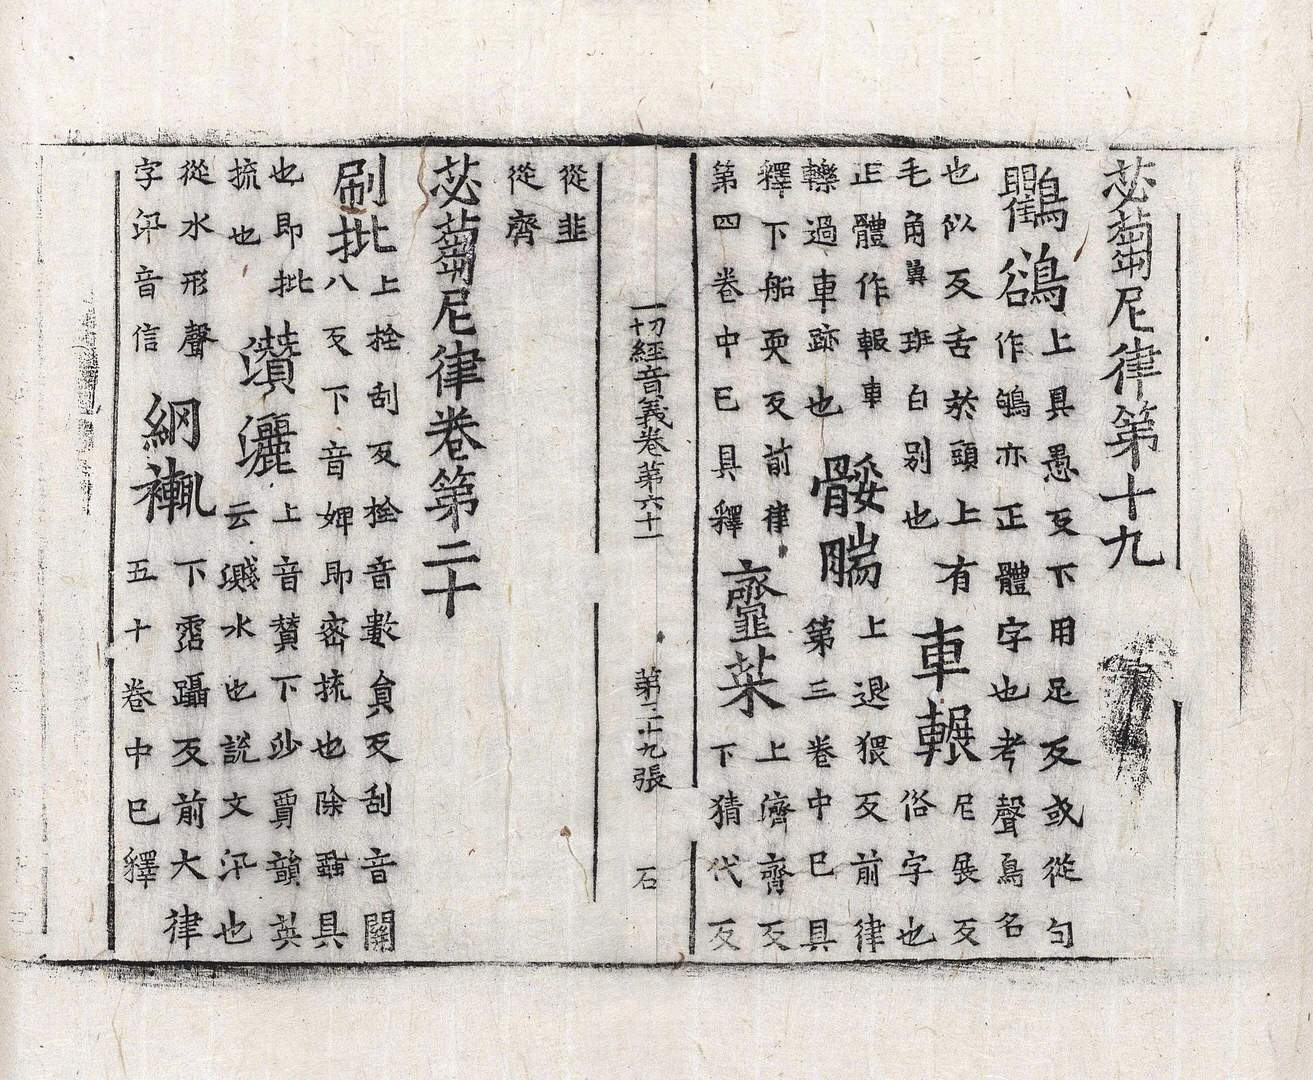 苾蒭尼律第十九
鸜鵒
上具愚反下用足反或從句
作鴝亦正體字也考聲鳥名
也似反舌於頭上有
毛角翼班白別也
車輾
尼展反
俗字也
正體作報車
轢過車跡也
骽腨
上退猥反前律
第三卷中已具
釋下船耎反前律
第四卷中已具釋
虀菜
上濟齊反
下猜代反
從韭
從齊
一切經音義卷第六十一
第三十九張
石
苾蒭尼律卷第二十
刷批
上拴刮反拴音數負反刮音關
八反下音婢即密梳也除蟣具
也即批
梳也
灒灑
上音賛下沙賈韻英
云濺水也說文汛也
從水形聲
字汛音信
網
下霑躡反前大律
五十卷中已釋